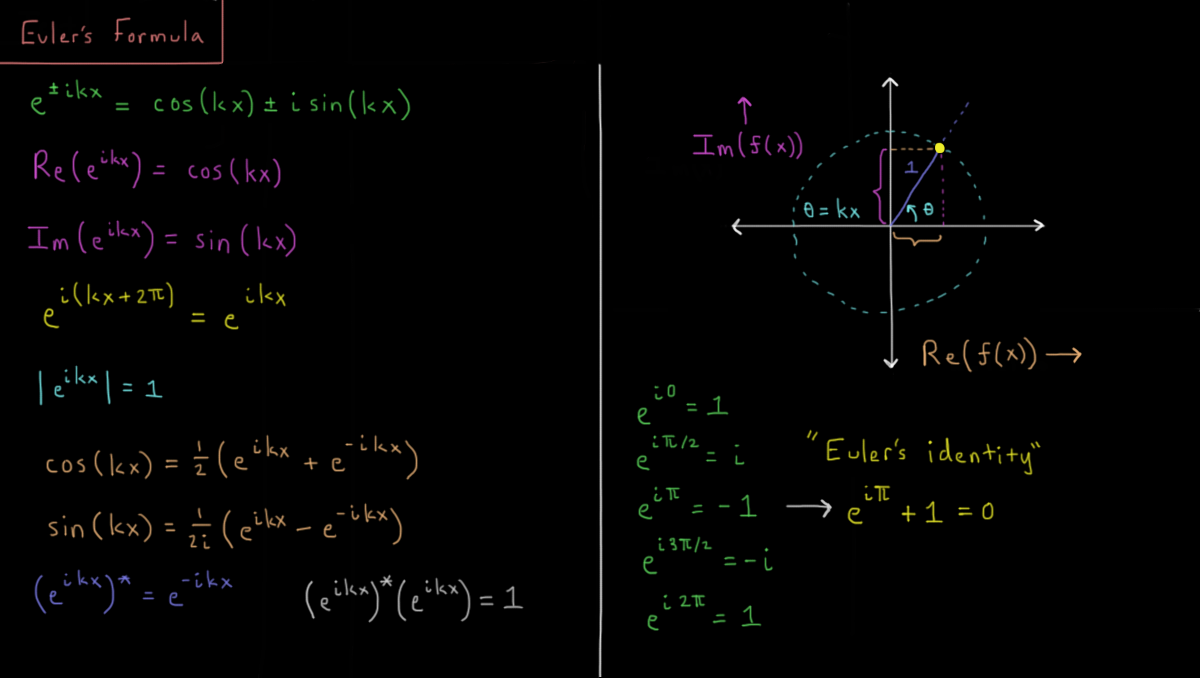 Euler's Formula
e^{±ikx} = cos(kx) ± i sin(kx)
Re(e^{ikx}) = cos(kx)
Im(e^{ikx}) = sin(kx)
e^{i(kx+2π)} = e^{ikx}
|e^{ikx}| = 1
cos(kx) = 1/2 (e^{ikx} + e^{-ikx})
sin(kx) = 1/2i (e^{ikx} - e^{-ikx})
(e^{ikx})* = e^{-ikx}
(e^{ikx})*(e^{ikx}) = 1
↑
Im(f(x))
1
θ = kx
θ
Re(f(x)) →
e^{i0} = 1
e^{iπ/2} = i
"Euler's identity"
e^{iπ} = -1 → e^{iπ} + 1 = 0
e^{i3π/2} = -i
e^{i2π} = 1